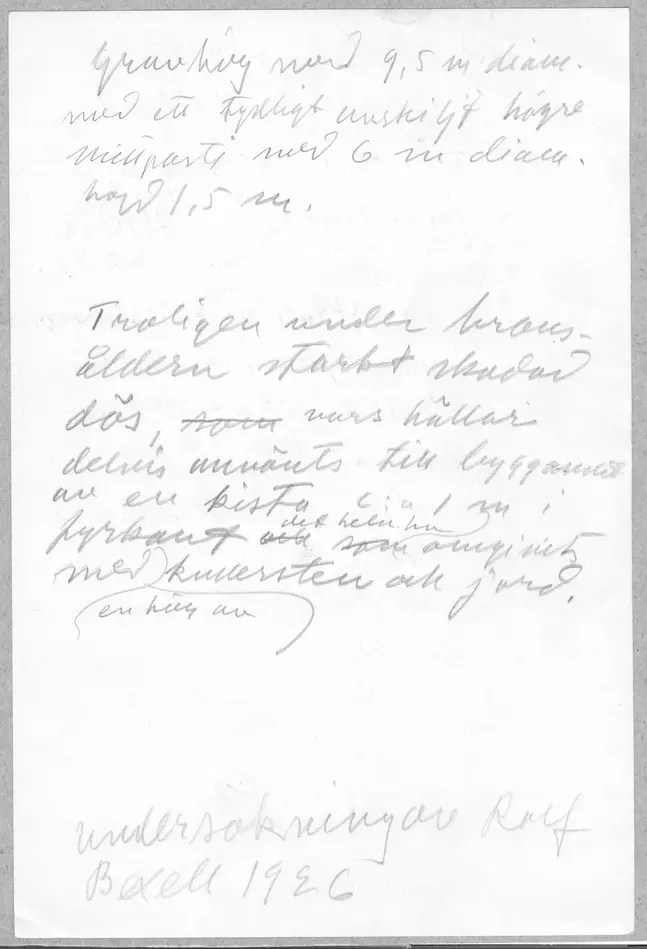 Gravhög med 9,5 m diam.
med ett tydligt urskiljt högre
mittparti med 6 m diam.
höjd 1,5 m.
Troligen under brons-
åldern starkt skadad
dös, som vars hällar
delvis använts till byggandet
av en kista c:a 1 m i
fyrkant och som det hela har omgivits
med kullersten och jord.
en hög av
undersökning av Rolf
Bexell 1926